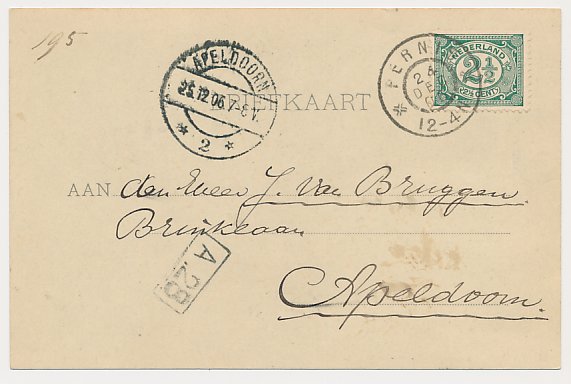 195
APELDOORN
25.12.06.7-8V.
2
BRIEFKAART
PERNIS
24 DEC 06
12-4N
NEDERLAND
2½
(2½ CENT)
AAN den Heer J. Van Bruggen
Brinklaan
A 28
Apeldoorn.